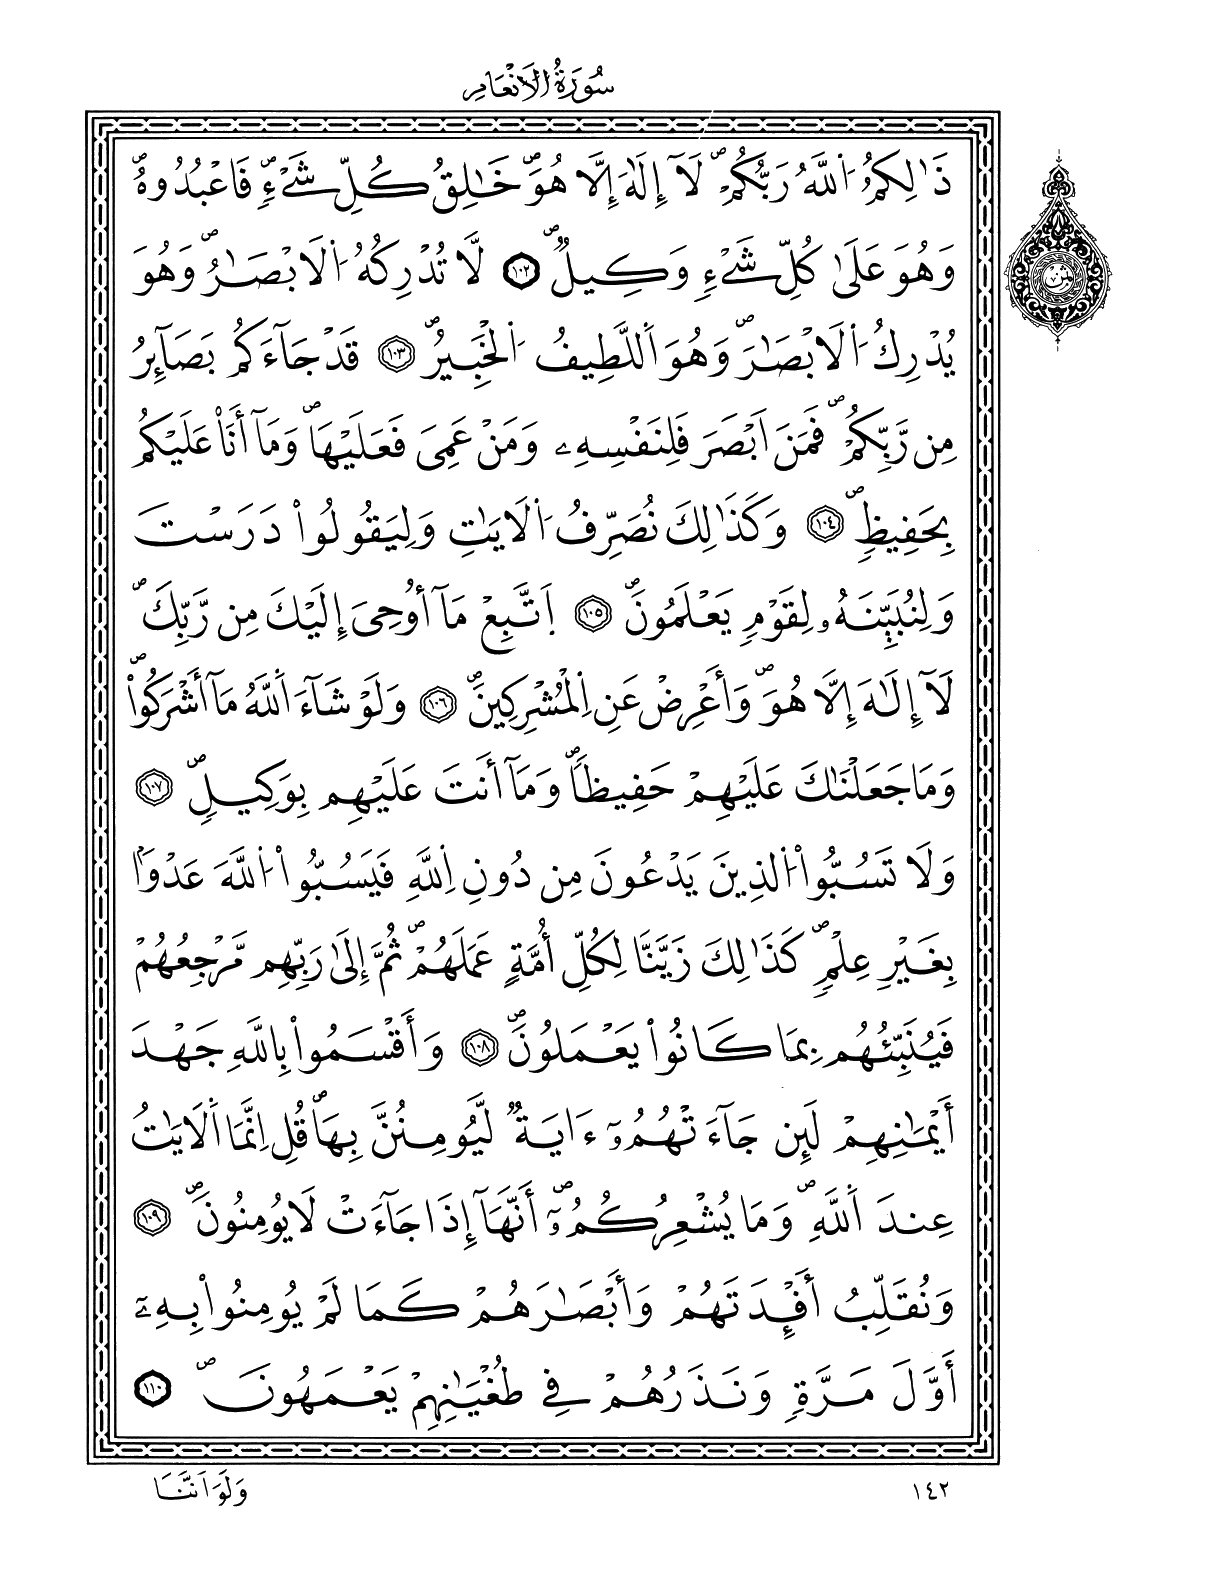 سُورَةُ الْأَنْعَامِ
ذَٰلِكُمُ اُ۬للَّهُ رَبُّكُمْۖ لَآ إِلَٰهَ إِلَّا هُوَۖ خَٰلِقُ كُلِّ شَےْءٖ فَاعْبُدُوهُۖ
وَهُوَ عَلَىٰ كُلِّ شَےْءٖ وَكِيلٞۖ ١٠٢ لَّا تُدْرِكُهُ اُ۬لَابْصَٰرُۖ وَهُوَ
يُدْرِكُ اُ۬لَابْصَٰرَۖ وَهُوَ اَ۬للَّطِيفُ اُ۬لْخَبِيرُۖ ١٠٣ قَدْ جَآءَكُم بَصَآئِرُ
مِن رَّبِّكُمْۖ فَمَنَ اَبْصَرَ فَلِنَفْسِهِۦ وَمَنْ عَمِيَ فَعَلَيْهَاۖ وَمَآ أَنَا۠ عَلَيْكُم
بِحَفِيظٖۖ ١٠٤ وَكَذَٰلِكَ نُصَرِّفُ اُ۬لَايَٰتِ وَلِيَقُولُواْ دَرَسْتَ
وَلِنُبَيِّنَهُۥ لِقَوْمٖ يَعْلَمُونَۖ ١٠٥ اَ۪تَّبِعْ مَآ أُوحِيَ إِلَيْكَ مِن رَّبِّكَۖ
لَآ إِلَٰهَ إِلَّا هُوَۖ وَأَعْرِضْ عَنِ اِ۬لْمُشْرِكِينَۖ ١٠٦ وَلَوْ شَآءَ اَ۬للَّهُ مَآ أَشْرَكُواْۖ
وَمَا جَعَلْنَٰكَ عَلَيْهِمْ حَفِيظاٗۖ وَمَآ أَنتَ عَلَيْهِم بِوَكِيلٖۖ ١٠٧
وَلَا تَسُبُّواْ اُ۬لذِينَ يَدْعُونَ مِن دُونِ اِ۬للَّهِ فَيَسُبُّواْ اُ۬للَّهَ عَدْواَۢ
بِغَيْرِ عِلْمٖۖ كَذَٰلِكَ زَيَّنَّا لِكُلِّ أُمَّةٍ عَمَلَهُمْۖ ثُمَّ إِلَىٰ رَبِّهِم مَّرْجِعُهُمْ
فَيُنَبِّئُهُم بِمَا كَانُواْ يَعْمَلُونَۖ ١٠٨ وَأَقْسَمُواْ بِاللَّهِ جَهْدَ
أَيْمَٰنِهِمْ لَئِن جَآءَتْهُمُۥٓ ءَايَةٞ لَّيُومِنُنَّ بِهَاۖ قُلِ اِنَّمَا اَ۬لَايَٰتُ
عِندَ اَ۬للَّهِۖ وَمَا يُشْعِرُكُمُۥٓۖ أَنَّهَآ إِذَا جَآءَتْ لَا يُومِنُونَۖ ١٠٩
وَنُقَلِّبُ أَفْـِٕدَتَهُمْ وَأَبْصَٰرَهُمْ كَمَا لَمْ يُومِنُواْ بِهِۦٓ
أَوَّلَ مَرَّةٖ وَنَذَرُهُمْ فِي طُغْيَٰنِهِمْ يَعْمَهُونَۖ ١١٠
١٤٢
وَلَوَ اَنَّنَا